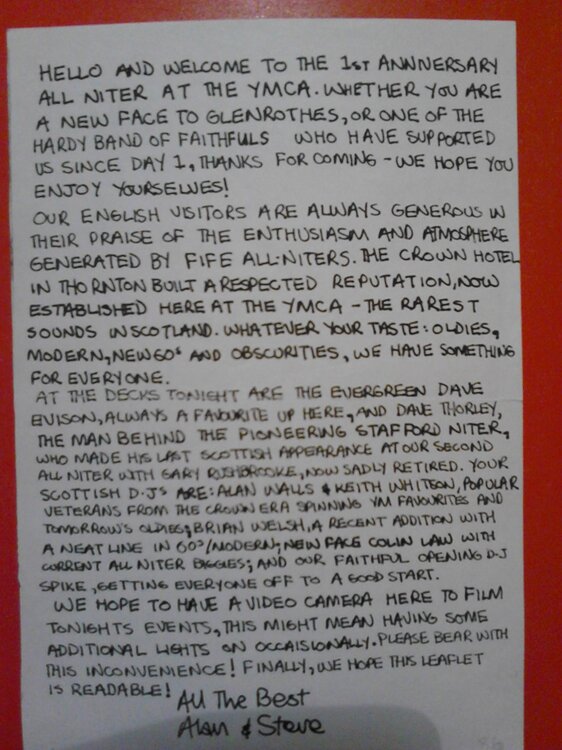 HELLO AND WELCOME TO THE 1ST ANNIVERSARY
ALL NITER AT THE YMCA. WHETHER YOU ARE
A NEW FACE TO GLENROTHES, OR ONE OF THE
HARDY BAND OF FAITHFULS WHO HAVE SUPPORTED
US SINCE DAY 1, THANKS FOR COMING - WE HOPE YOU
ENJOY YOURSELVES!
OUR ENGLISH VISITORS ARE ALWAYS GENEROUS IN
THEIR PRAISE OF THE ENTHUSIASM AND ATMOSPHERE
GENERATED BY FIFE ALL-NITERS. THE CROWN HOTEL
IN THORNTON BUILT A RESPECTED REPUTATION, NOW
ESTABLISHED HERE AT THE YMCA - THE RAREST
SOUNDS IN SCOTLAND. WHATEVER YOUR TASTE: OLDIES,
MODERN, NEW 60s AND OBSCURITIES, WE HAVE SOMETHING
FOR EVERYONE.
AT THE DECKS TONIGHT ARE THE EVERGREEN DAVE
EVISON, ALWAYS A FAVOURITE UP HERE, AND DAVE THORLEY,
THE MAN BEHIND THE PIONEERING STAFFORD NITER,
WHO MADE HIS LAST SCOTTISH APPEARANCE AT OUR SECOND
ALL NITER WITH GARY RUSHBROOKE, NOW SADLY RETIRED. YOUR
SCOTTISH D-J's ARE: ALAN WALLS & KEITH WHITSON, POPULAR
VETERANS FROM THE CROWN ERA SPINNING YM FAVOURITES AND
TOMORROW'S OLDIES; BRIAN WELSH, A RECENT ADDITION WITH
A NEAT LINE IN 60s/MODERN; NEW FACE COLIN LAW WITH
CURRENT ALL NITER BIGGIES; AND OUR FAITHFUL OPENING D-J
SPIKE, GETTING EVERYONE OFF TO A GOOD START.
WE HOPE TO HAVE A VIDEO CAMERA HERE TO FILM
TONIGHTS EVENTS, THIS MIGHT MEAN HAVING SOME
ADDITIONAL LIGHTS ON OCCAISIONALLY. PLEASE BEAR WITH
THIS INCONVENIENCE! FINALLY, WE HOPE THIS LEAFLET
IS READABLE!
All The Best
Alan & Steve